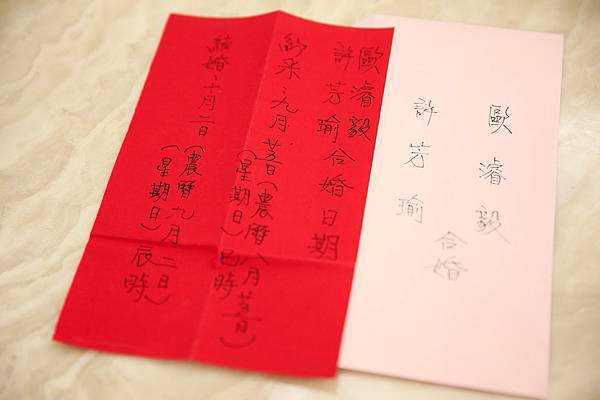 歐濬毅
許芳瑜合婚日期
納采:九月廿五日(農曆八月廿五日)
(星期日)巳時
結婚:十月二日(農曆九月二日)
(星期日)辰時
歐濬毅
合婚
許芳瑜